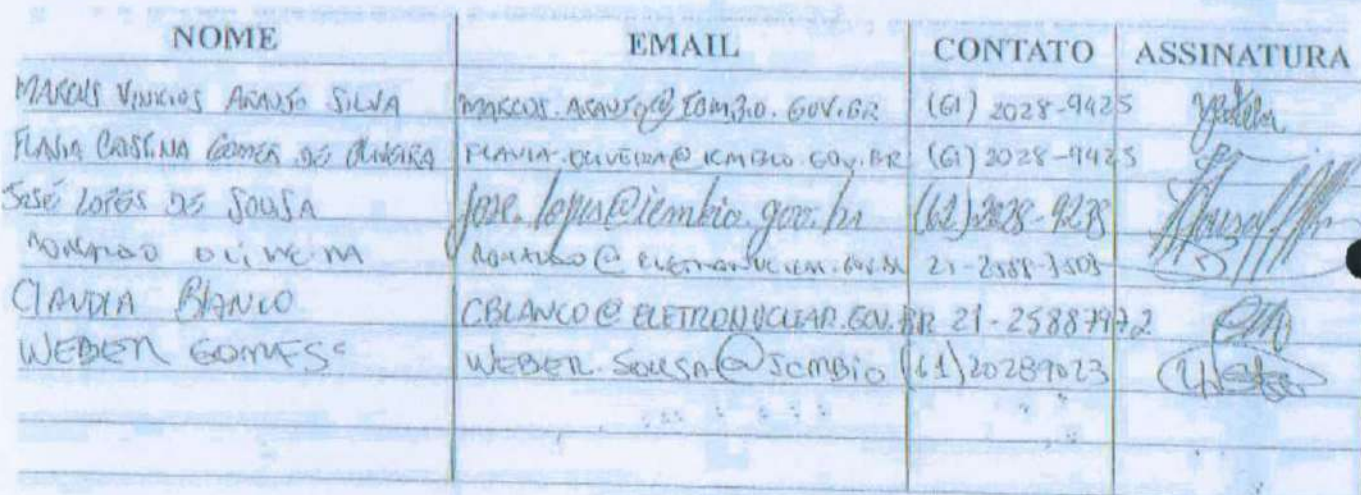 NOME EMAIL CONTATO ASSINATURA
MARCUS VINICIOS ARAUJO SILVA MARCUS.ARAUJO@ICMBIO.GOV.BR (61) 2028-9425
FLAVIA CRISTINA GOMES DE OLIVEIRA FLAVIA.OLIVEIRA@ICMBIO.GOV.BR (61) 2028-9425
JOSÉ LOPES DE SOUSA jose.lopes@icmbio.gov.br (61) 2028-9238
RONALDO OLIVEIRA 21-2588-
CLAUDIA BLANCO CBLANCO@ELETRONUCLEAR.GOV.BR 21-25887972
WEBER GOMES WEBER.SOUSA@ICMBIO (61) 20289023